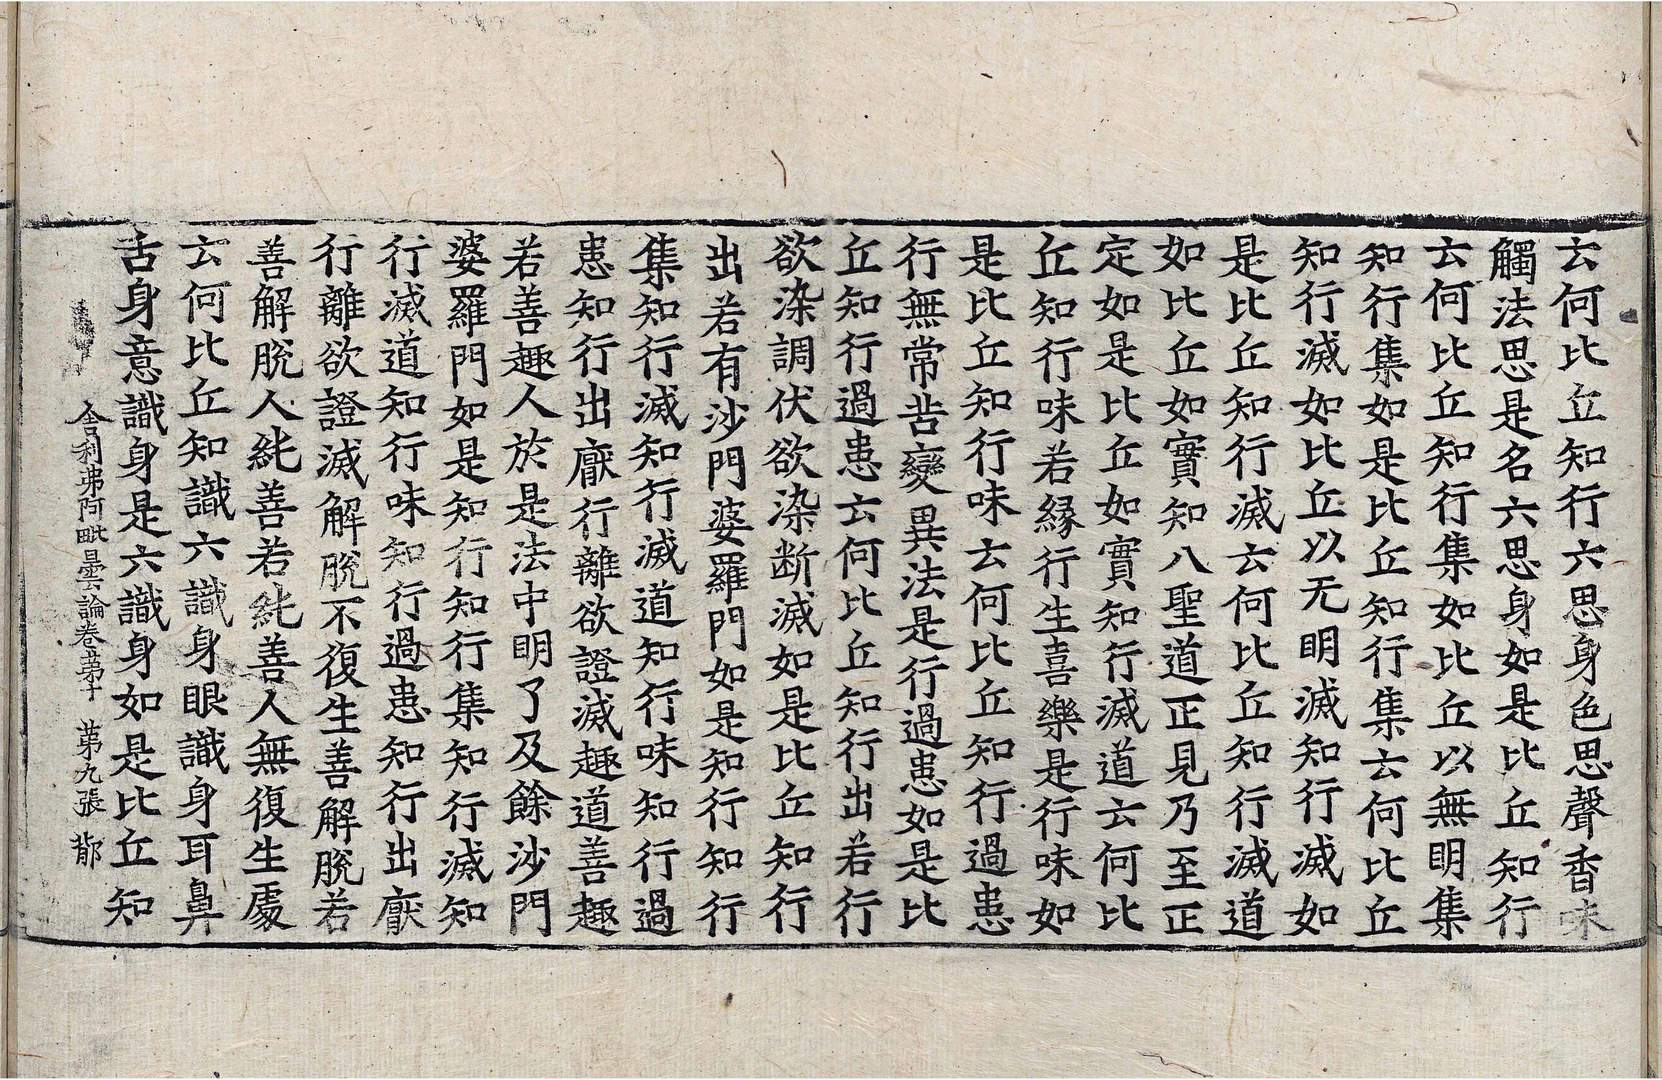 云何比丘知行六思身色思聲香味
觸法思是名六思身如是比丘知行
云何比丘知行集如比丘以無明集
知行集如是比丘知行集云何比丘
知行滅如比丘以无明滅知行滅如
是比丘知行滅云何比丘知行滅道
如比丘如實知八聖道正見乃至正
定如是比丘如實知行滅道云何比
丘知行味若緣行生喜樂是行味如
是比丘知行味云何比丘知行過患
行無常苦變異法是行過患如是比
丘知行過患云何比丘知行出若行
欲染調伏欲染断滅如是比丘知行
出若有沙門婆羅門如是知行知行
集知行滅知行滅道知行味知行過
患知行出厭行離欲證滅趣道善趣
若善趣人於是法中明了及餘沙門
婆羅門如是知行知行集知行滅知
行滅道知行味知行過患知行出厭
行離欲證滅解脫不復生善解脫若
善解脫人純善若純善人無復生處
云何比丘知識六識身眼識身耳鼻
舌身意識身是六識身如是比丘知
舍利弗阿毗曇論卷苐十 苐九張